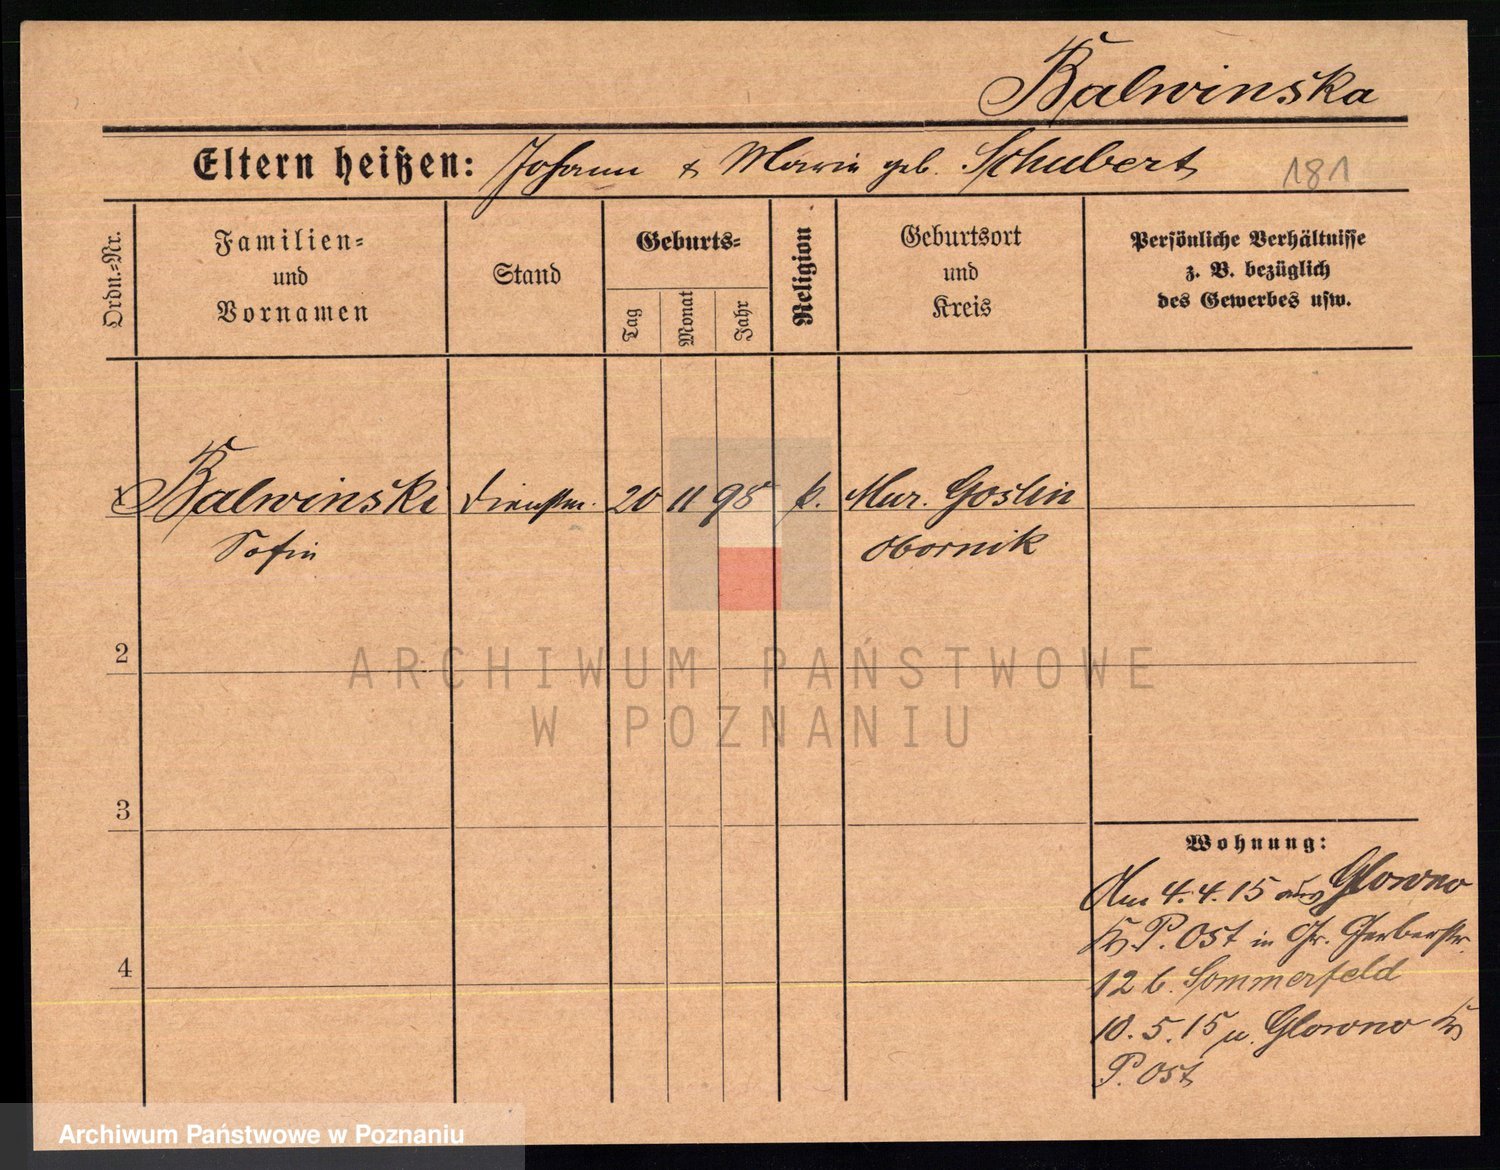 Balwinska
Eltern heißen: Johann & Marie geb. Schubert 181
Ordn.-Nr.
Familien-
und
Vornamen
Stand
Geburts-
Tag
Monat
Jahr
Religion
Geburtsort
und
Kreis
Persönliche Verhältnisse
z. B. bezüglich
des Gewerbes usw.
1 Balwinski Dienstm. 20 11 98 k. Mur. Goslin
Sofie Obornik
2
3
4
Wohnung:
Am 4.4.15 aus Glowno
Kr. P. Ost in Gr. Gerberstr.
12 b. Sommerfeld
10.5.15 n. Glowno Kr
P. Ost
ARCHIWUM PAŃSTWOWE
W POZNANIU
Archiwum Państwowe w Poznaniu